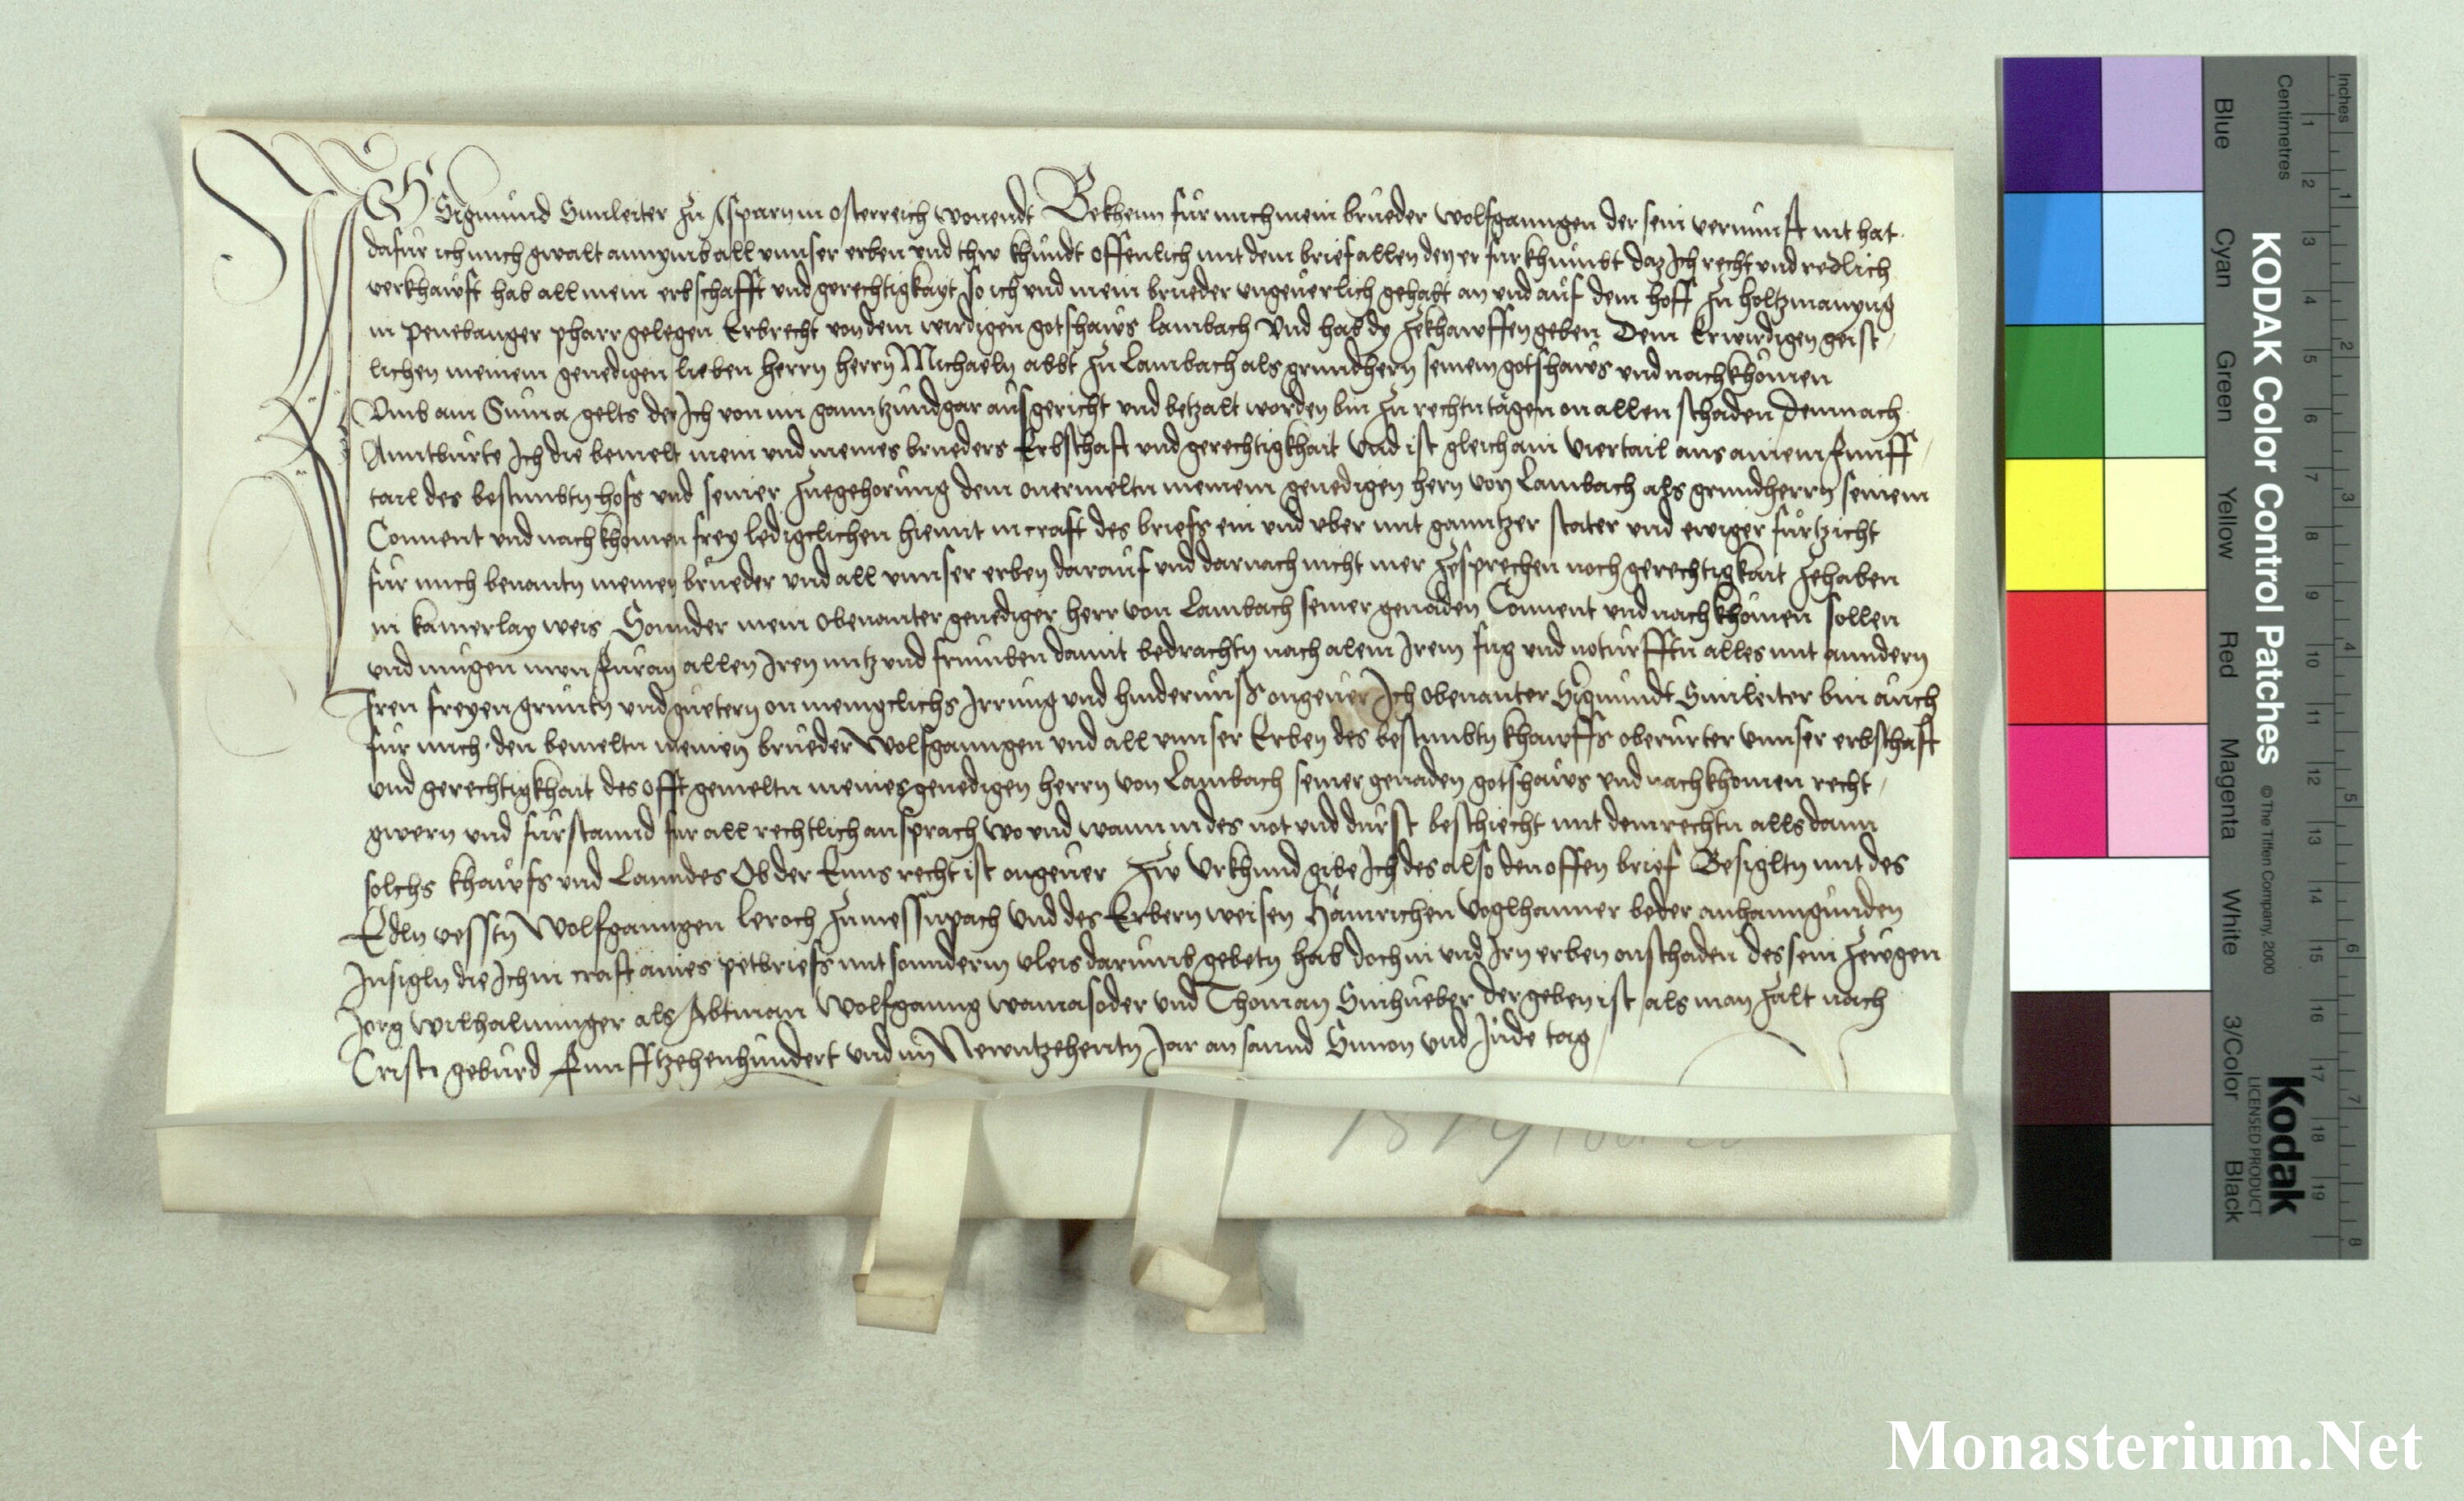 Ich Sigmund Sunleiter zu Aspary in osterreich wonendt Bekhenn für mich mein brueder wolfganngen der sein vernunft nit hat
dafür ich mich gwalt annymb all vnnser erben vnd thw khundt offenlich mit dem brief allen den er fürkhumbt daz Ich recht vnd redlich
verkhawft hab all mein erbschafft vnd gerechtigkayt so ich vnd mein brueder vngeuerlich gehabt an vnd auf dem hoff zu holtzmanyng
in penebanger pharr gelegen Erbrecht von dem wirdigen gotshaws lambach Vnd hab dy ze khawffen geben Dem Erwirdigen geist
lichen meinem genedigen lieben herrn herrn Michaeln abbt zu Lambach als grundhern seinem gotshaws vnd nachkhomen
Vmb ain Suma gelts der Ich von im ganntz vnd gar ausgericht vnd betzalt worden bin zu rechtn tägen on allen schaden demnach
Anntburte Ich die bemelt mein vnd meines brueders Erbschaft vnd gerechtigkhait Vnd ist gleich ain viertail aus ainem funff
tail des bestimbtn hofs vnd seiner zuegehorung dem ouermeltn meinem genedigen hern von Lambach als grundherrn seinem
Conuent vnd nachkhomen frey ledigclichen hiemit in craft des briefs ein vnd vber mit ganntzer stater vnd ewiger fürtzicht
für mich benantn meinen brueder vnd all vnnser erben darauf vnd darnach nicht mer zesprechen noch gerechtigkait zehaben
in kainerlay weis Sonnder mein obenanter genediger herr von Lambach seiner genaden Conuent vnd nachkhomen sollen
vnd mugen nun füran allen Iren nutz vnd frumben damit bedrachtn nach alem Irem fug vnd noturfftn alles mit anndern
Iren freyen gruntn vnd guetern on menigclichs Irrung vnd hindernuss ongeuer Ich obenanter Sigmundt Sunleiter bin auch
für mich den bemeltn meinen brueder Wolfganngen vnd all vnnser Erben des bestimbtn khawffs oberurter vnnser erbschaft
vnd gerechtigkhait des offt gemeltn meines genedigen herrn von Lambach seiner genaden gotshaws vnd nachkhomen recht
gwern vnd fürstannd fur all rechtlich ansprach wo vnd wann in des not vnd durft beschiecht mit dem rechtn alls dann
solchs khawfs vnd Lanndes Ob der Enns recht ist ongeuer Zw Vrkhund gibe Ich des also den offen brief Besigltn mit des
Edln vesstn Wolfganngen leroch zu messnpach Vnd des Erbern weisen Hainrichen Voglhanner beder anhanngunden
Insigln die Ich in craft aines petbriefs mit sonnderm vleis darumb gebetn hab doch in vnd Irn erben on schaden des sein zewgen
Jorg wilhalminger als Abtman Wolfgang wamasoder vnd Thoman Sinhueber Der geben ist als man zalt nach
Cristi geburd Funfftzehenhundert vnd im Newntzehentn Jar an sannd Simon vnd Jude tag
1519
KODAK Color Control Patches
© The Tiffen Company, 2000
Kodak
LICENSED PRODUCT
Inches
Centimetres
1 2 3 4 5 6 7 8
1 2 3 4 5 6 7 8 9 10 11 12 13 14 15 16 17 18 19
Blue
Cyan
Green
Yellow
Red
Magenta
White
3/Color
Black
Monasterium.Net